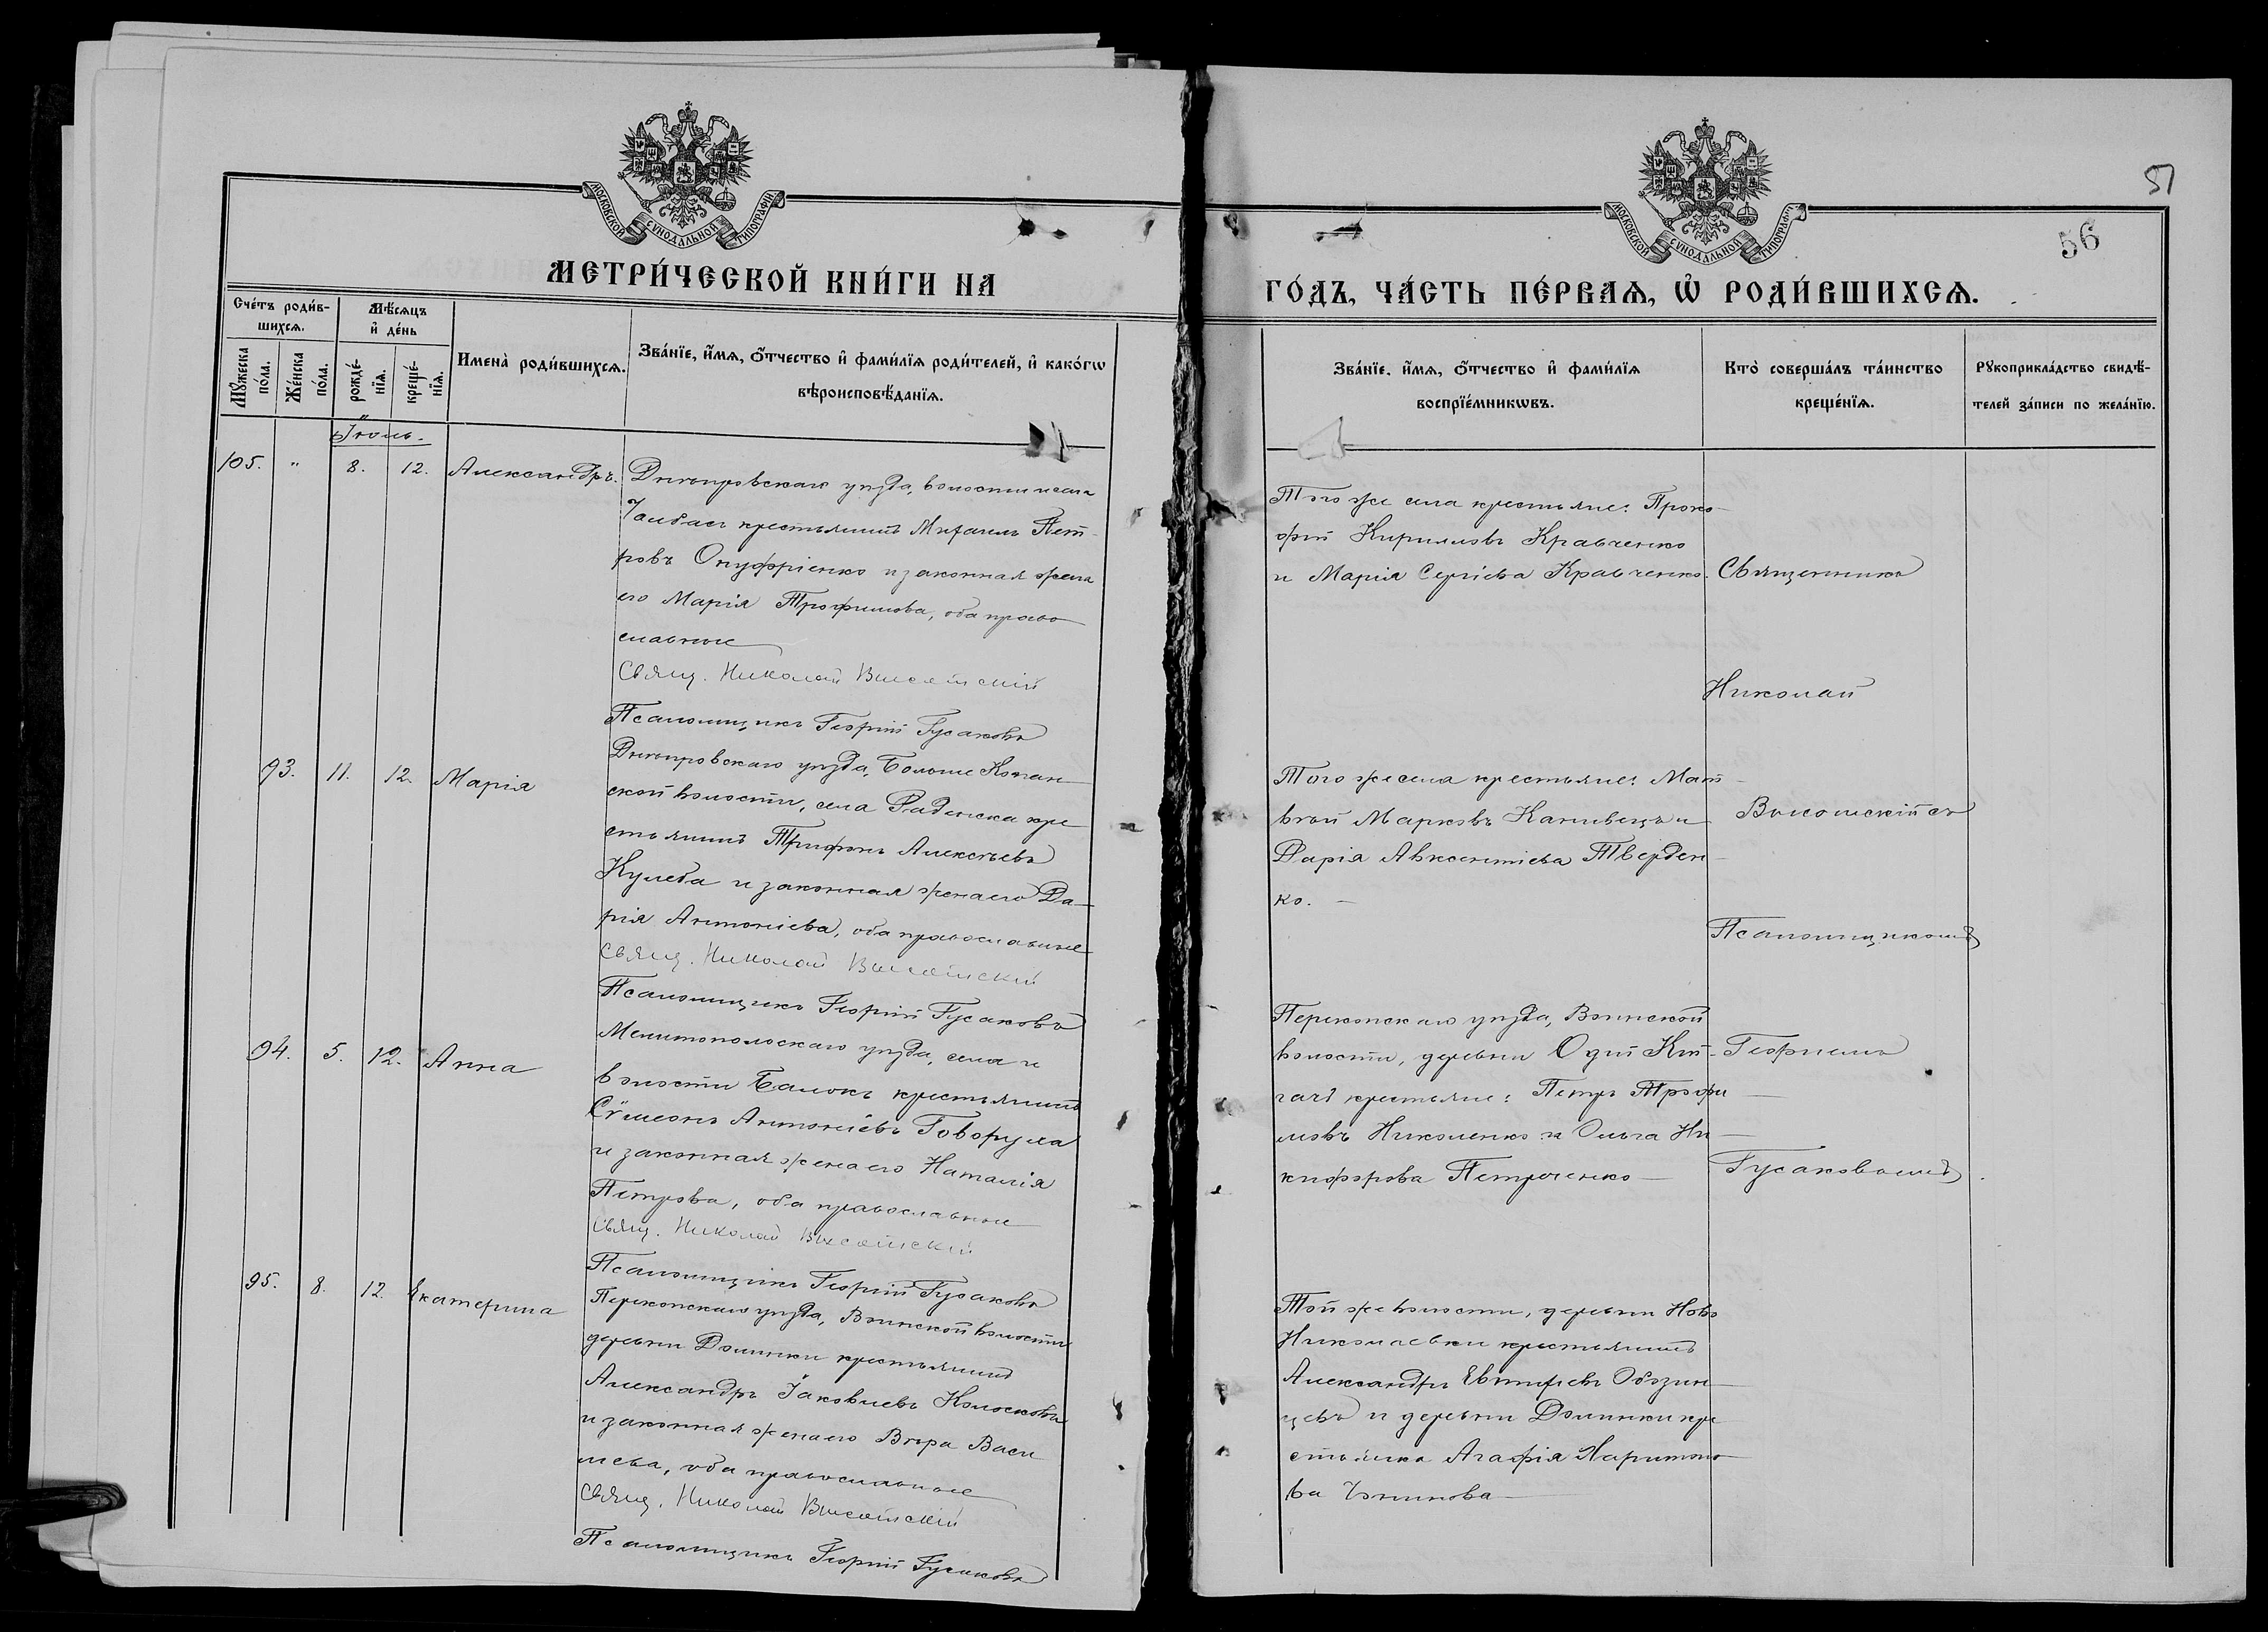 МОСКОВСКОЙ СѴНОДАЛЬНОЙ ТИПОГРАФІИ
МЕТРИ́ЧЕСКОЙ КНИ́ГИ НА
Сче́тъ роди́в-
шихсѧ.
Мѣ́сѧцъ
и҆ де́нь
Мꙋ́жеска
по́ла.
Же́нска
по́ла.
рожде́-
нїѧ.
креще́-
нїѧ.
Имена̀ роди́вшихсѧ.
Зва́нїе, и҆́мѧ, ѻ҆́тчество и҆ фами́лїѧ роди́телей, и҆ како́гѡ
вѣроисповѣ́данїѧ.
Іюль.
105. " 8. 12. Александръ.
Днѣпровскаго уѣзда, волости и села
Чалбасъ крестьянинъ Михаилъ Пет-
ровъ Онуфріенко и законная жена
его Марія Трофимова, оба право
славные
Свящ. Николай
Псаломщикъ Георгій Гусаковъ
93. 11. 12. Марія
Днѣпровскаго уѣзда, Больше Копан-
ской волости, села Раденска кре
стьянинъ Трифонъ Алексѣевъ
Кулеба и законная жена его Да-
рія Антоніева, оба православные
Свящ. Николай
Псаломщикъ Георгій Гусаковъ
94. 5. 12. Анна
Мелитопольскаго уѣзда, села и
волости Балокъ крестьянинъ
Сѵмеонъ Антоніевъ Говоруха
и законная жена его Наталія
Петрова, оба православные
Свящ. Николай
Псаломщикъ Георгій Гусаковъ
95. 8. 12. Екатерина
Перекопскаго уѣзда, Воинской волости
деревни Долинки крестьянинъ
Александръ Іаковлевъ Колосковъ
и законная жена его Вѣра Васи
льева, оба православные
Свящ. Николай
Псаломщикъ Георгій Гусаковъ
51
56
МОСКОВСКОЙ СѴНОДАЛЬНОЙ ТИПОГРАФІИ
ГО́ДЪ, ЧА́СТЬ ПЕ́РВАѦ, Ѡ҆ РОДИ́ВШИХСѦ.
Зва́нїе. и҆́мѧ, ѻ҆́тчество и҆ фами́лїѧ
воспрїе́мникѡвъ.
Кто̀ соверша́лъ та́инство
креще́нїѧ.
Рꙋкоприкла́дство свидѣ́-
телей за́писи по жела́нїю.
Того же села крестьяне: Проко-
фій Кирилловъ Кравченко
и Марія Сергіева Кравченко.
Того же села крестьяне: Мат-
вѣй Марковъ Канивецъ и
Дарія Авксентіева Тверден-
ко. —
Перекопскаго уѣзда, Воинской
волости, деревни
крестьяне: Петръ Трофи-
мовъ Николенко и Ольга Ни-
кифорова Петриченко
Той же волости, деревни Ново
Николаевки крестьянинъ
Александръ Евтихіевъ
и деревни Долинки кре
стьянка Агафія Харитоно
ва
Священникъ
Николай
Псаломщикомъ
Георгіемъ
Гусаковымъ